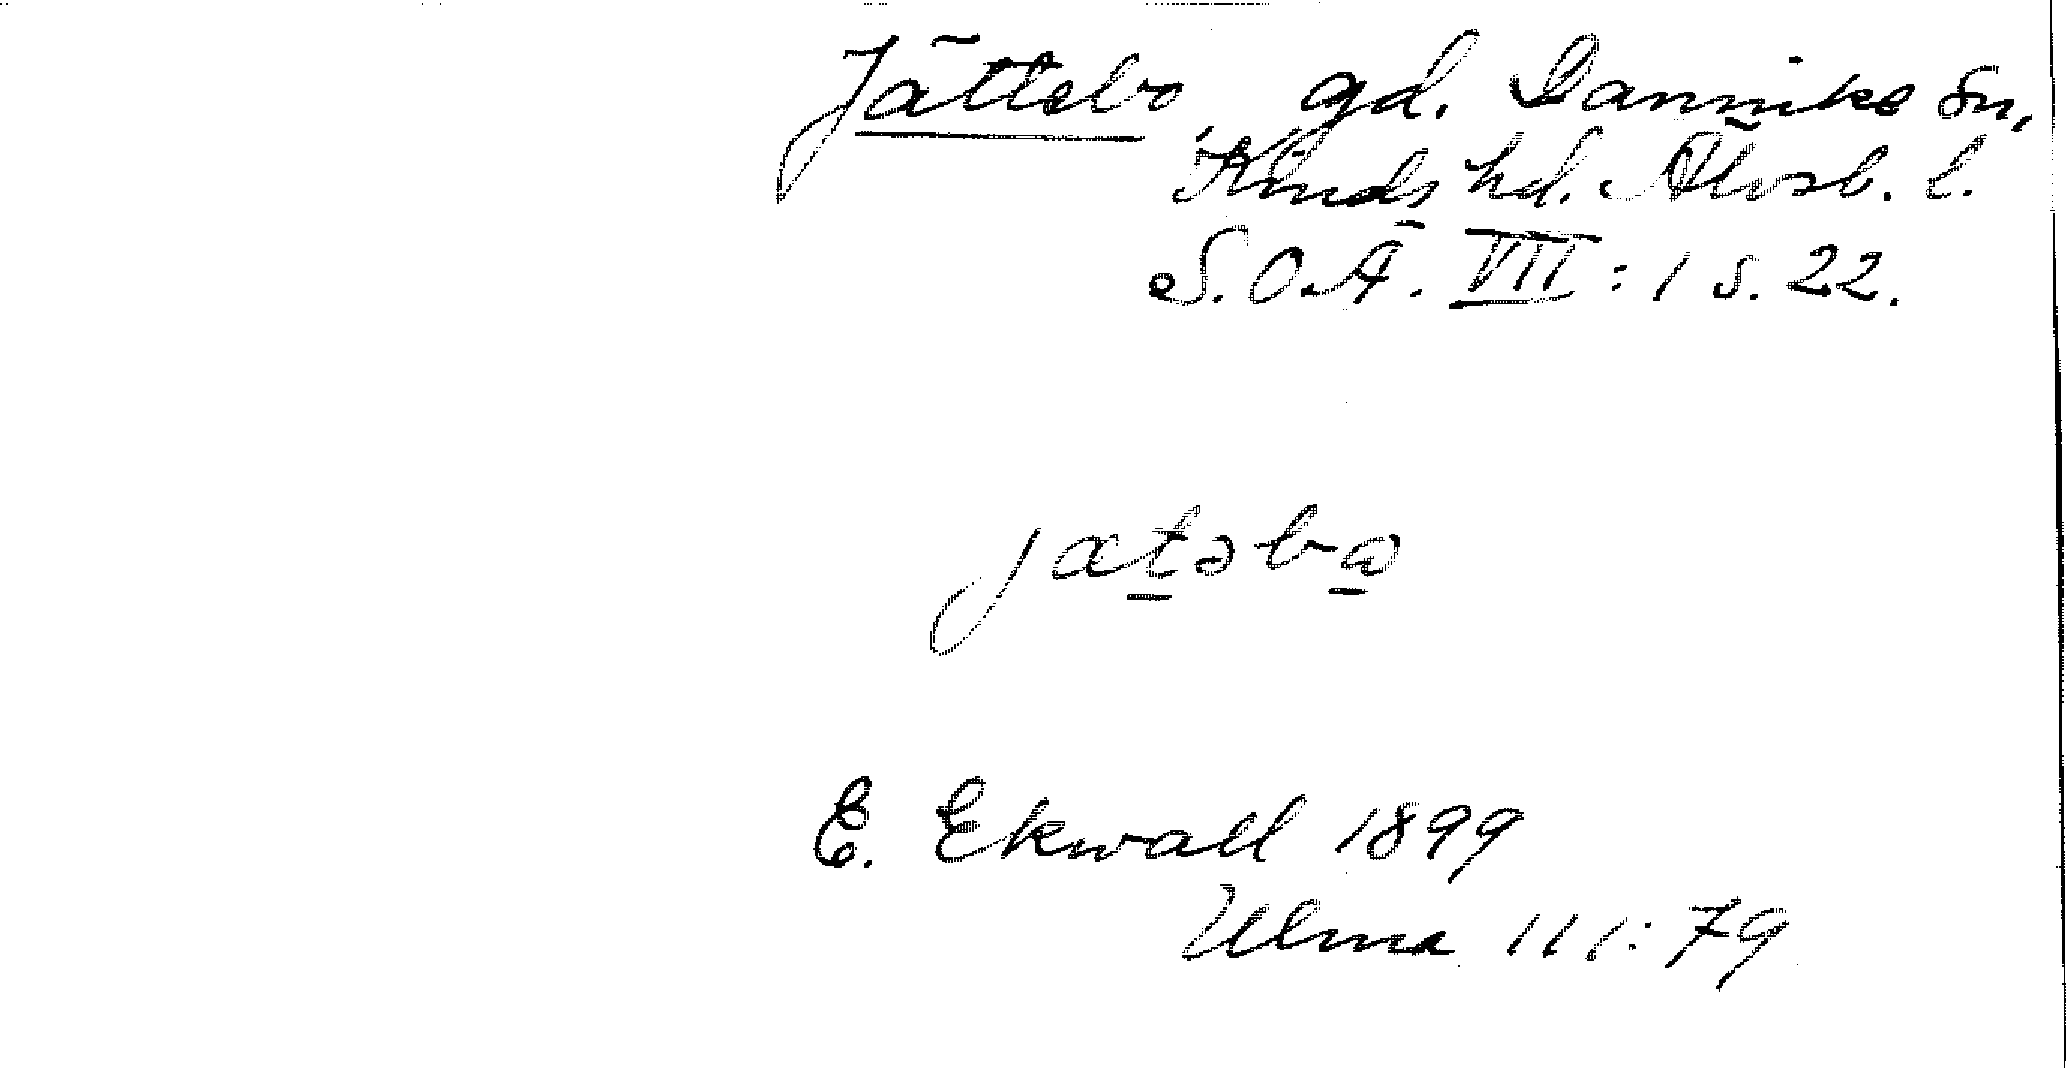 Jättebo, gd. Dannike sn,
Kinds hd. Älvsb. l.
S.O.Ä. VII : 1 s. 22.
jatəba
E. Ekwall 1899
Ulma 111:79